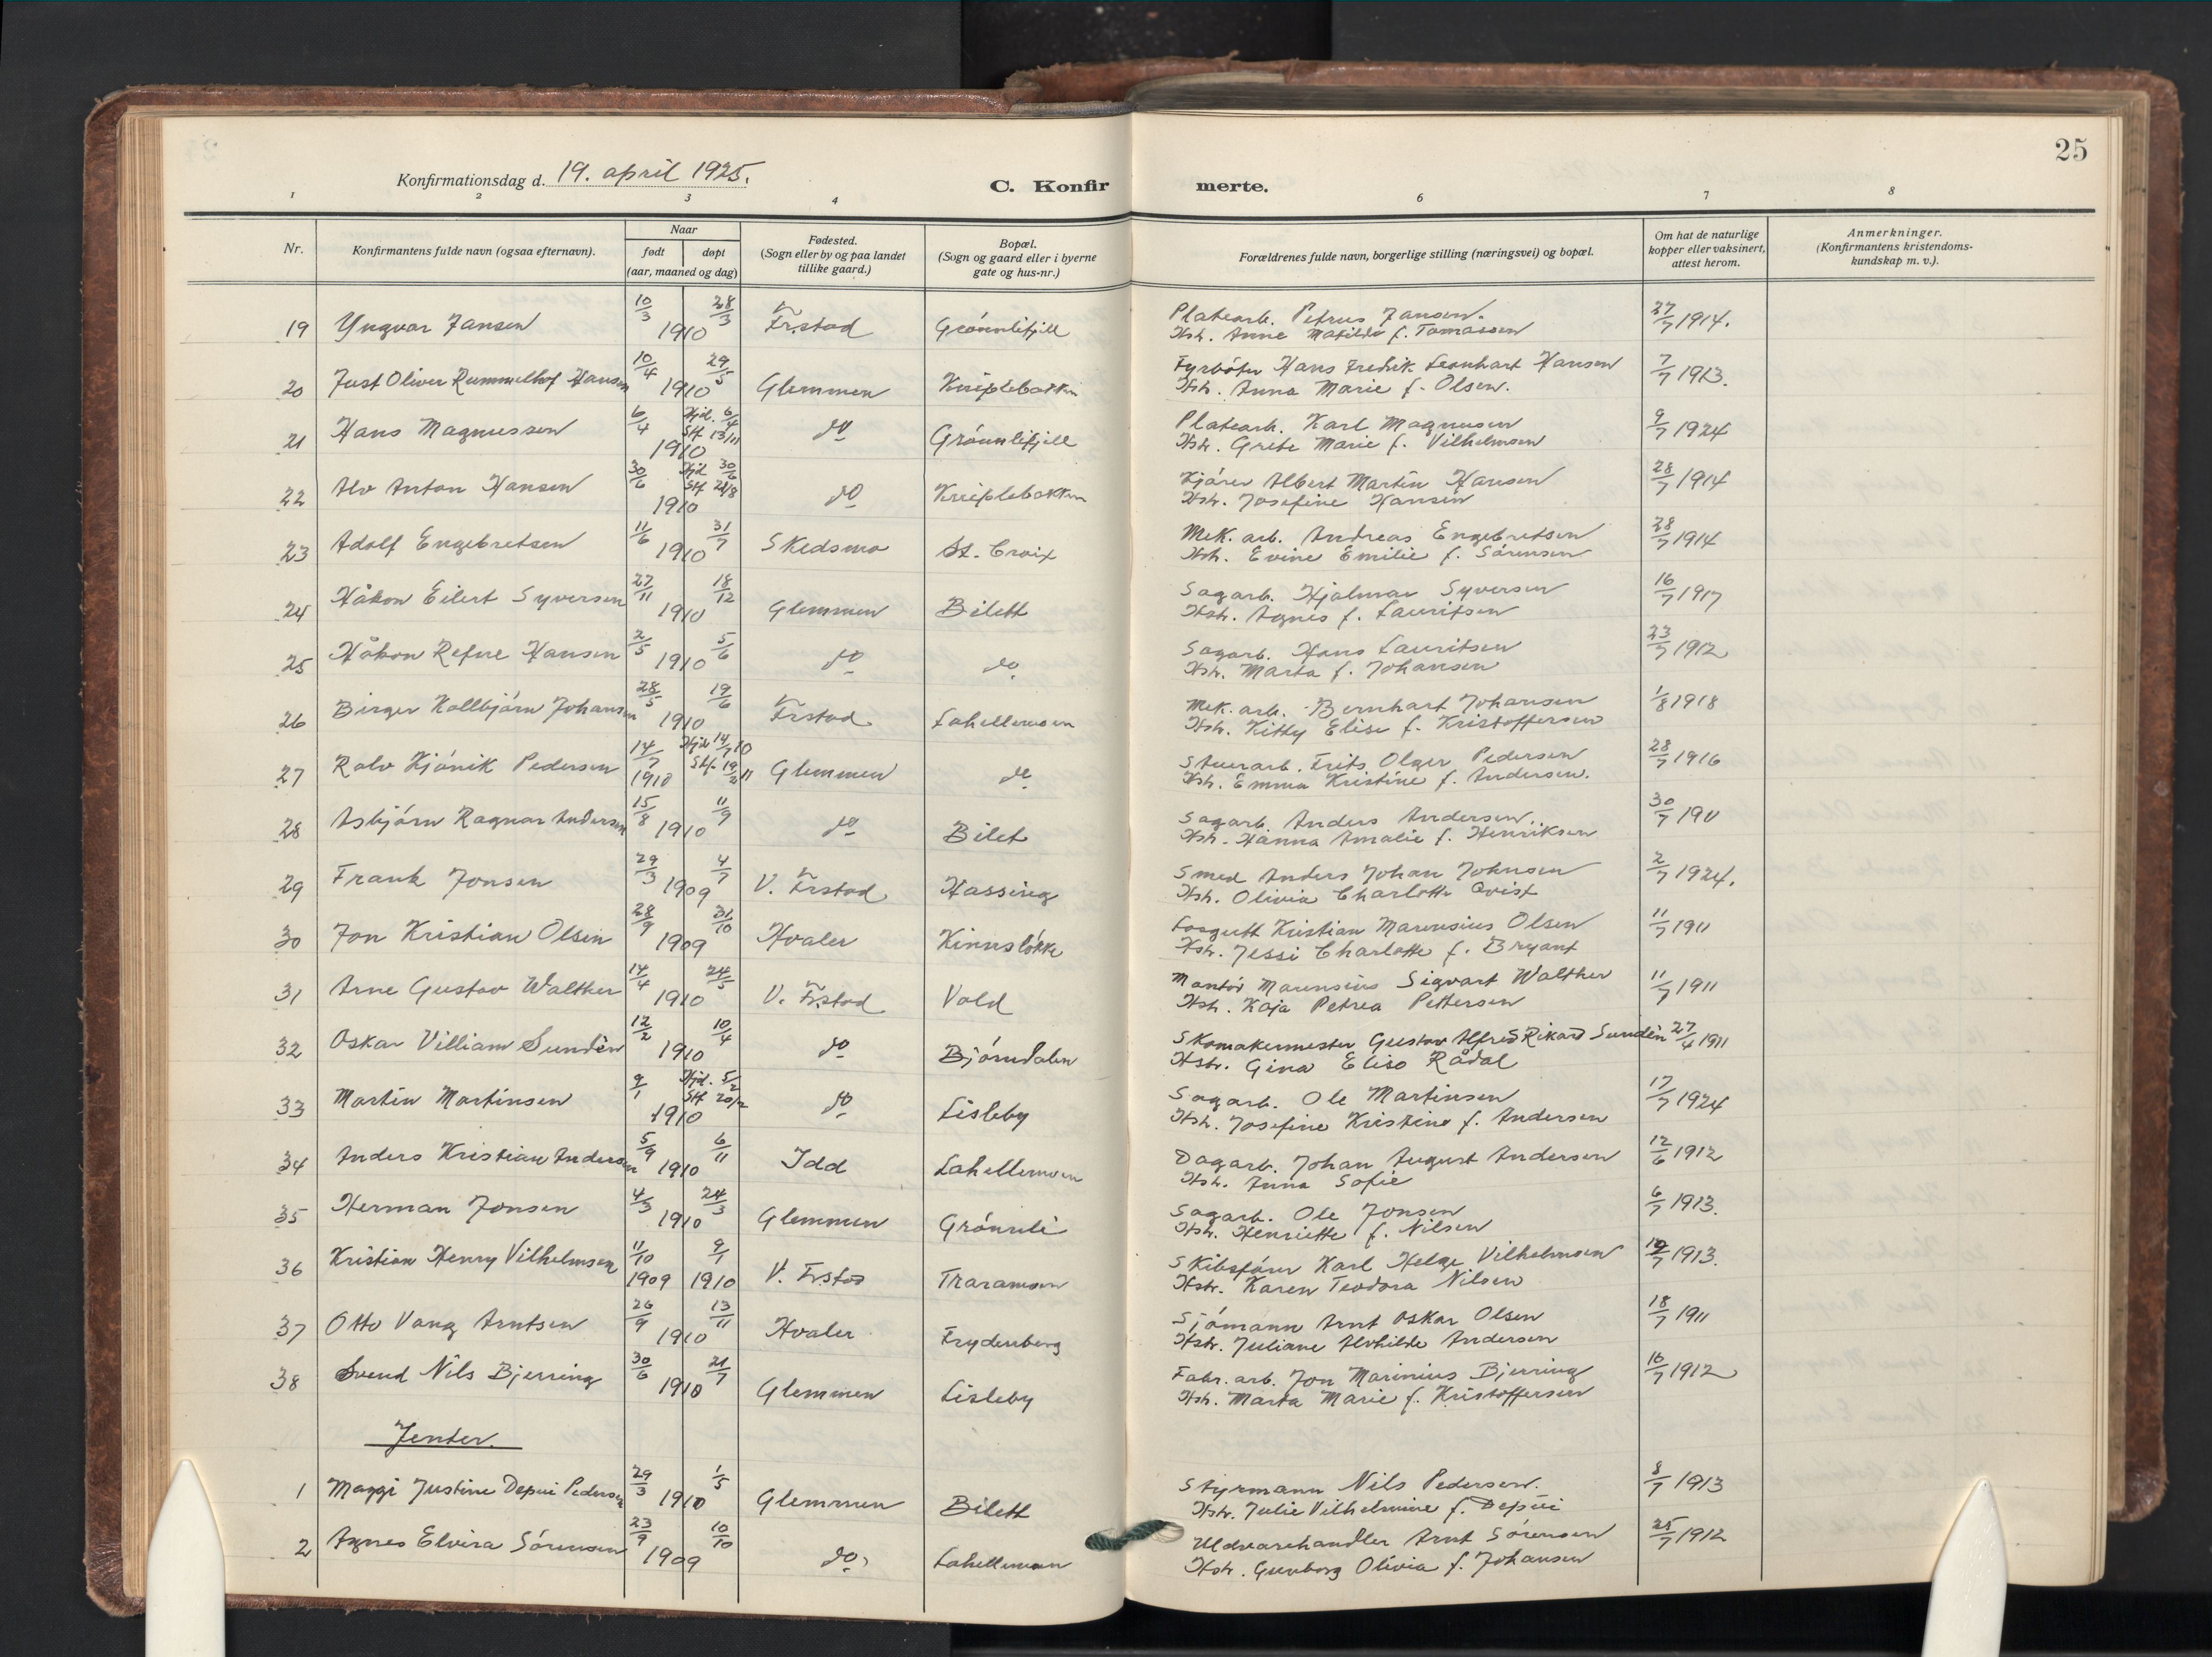 25
Konfirmationsdag d. 19. april 1925.
C. Konfir
merte.
1 2 3 4 6 7 8
Nr.
Konfirmantens fulde navn (ogsaa efternavn).
Naar
født døpt
(aar, maaned og dag)
Fødested.
(Sogn eller by og paa landet
tillike gaard.)
Bopæl.
(Sogn og gaard eller i byerne
gate og hus-nr.)
Forældrenes fulde navn, borgerlige stilling (næringsvei) og bopæl.
Om hat de naturlige
kopper eller vaksinert,
attest herom.
Anmerkninger.
(Konfirmantens kristendoms-
kundskap m. v.).
19 Yngvar Jansen 10/3 28/3 1910 Fr.stad Grønnlifjell Platearb. Petrus Jansen. 27/7 1914.
Hstr. Anne Matilde f. Tomassen
20 Just Oliver Rummelhof Hansen 10/4 29/5 1910 Glemmen Kniplebakken Fyrbøter Hans Fredrik Leonhart Hansen 7/7 1913.
Hstr. Anna Marie f. Olsen.
21 Hans Magnussen 6/4 Hjd. 6/4 Stf. 13/11 1910 do Grønnlifjell Platearb. Karl Magnusen 9/7 1924
Hstr. Grete Marie f. Vilhelmsen
22 Alv Anton Hansen 30/6 Hjd 30/6 Stf 21/8 1910 do Kniplebakken Kjører Albert Martin Hansen 28/7 1914
Hstr. Josefine Hansen
23 Adolf Engebretsen 11/6 31/7 1910 Skedsmo St. Croix Mek. arb. Andreas Engebretsen 28/7 1914
Hstr. Evine Emilie f. Sørensen
24 Håkon Eilert Syversen 27/11 18/12 1910 Glemmen Bilett Sagarb. Hjalmar Syversen 16/7 1917
Hstr. Agnes f. Lauritsen
25 Håkon Refne Hansen 2/5 5/6 1910 do do Sagarb. Hans Lauritsen 23/7 1912
Hstr. Marta f. Johansen
26 Birger Kollbjørn Johansen 28/5 19/6 1910 Frstad Lahellemoen Mek. arb. Bernhart Johansen 1/8 1918
Hstr. Kitty Elise f. Kristoffersen
27 Ralv Kjønik Pedersen 14/7 1910 Hjd 14/7 10 Stf. 19/2 11 Glemmen do Stuerarb. Frits Olger Pedersen 28/7 1916
Hstr. Emma Kristine f. Andersen.
28 Asbjørn Ragnar Andersen 15/8 11/9 1910 do Bilet Sagarb. Anders Andersen. 30/7 1911
Hstr. Hanna Amalie f. Henriksen
29 Frank Jonsen 29/3 4/7 1909 V. Frstad Hassing Smed Anders Johan Johnsen 2/7 1924.
Hstr. Olivia Charlotte Qvist
30 Jon Kristian Olsen 28/9 31/10 1909 Hvaler Kinnsløkke Losgutt Kristian Marensius Olsen 11/7 1911
Hstr. Jessi Charlotte f. Bryant
31 Arne Gustav Walther 14/4 24/5 1910 V. Frstad Vold Montør Marensius Sigvart Walther 11/7 1911
Hstr. Kaja Petrea Pettersen
32 Oskar Villiam Sundèn 12/2 10/4 1910 do Bjørndalen Skomakermester Gustav Alfred Rikard Sundèn 27/4 1911
Hstr. Gina Elise Rådal
33 Martin Martinsen 9/1 Hjd. 5/2 Stf 20/2 1910 do Lisleby Sagarb. Ole Martinsen 17/7 1924
Hstr. Josefine Kristine f. Andersen
34 Anders Kristian Andersen 5/9 6/11 1910 Idd Lahellemoen Dagarb. Johan August Andersen 12/6 1912
Hstr. Anna Sofie
35 Herman Jonsen 4/3 24/3 1910 Glemmen Grønnli Sagarb. Ole Jonsen 6/7 1913.
Hstr. Henriette f. Nilsen
36 Kristian Henry Vilhelmsen 11/10 1909 9/1 1910 V. Frstad Traramoen Skibsfører Karl Helge Vilhelmsen 1913.
Hstr. Karen Teodora Nilsen
37 Otto Vang Arntsen 26/9 13/11 1910 Hvaler Frydenberg Sjømann Arnt Oskar Olsen 18/7 1911
Hstr. Juliane Alvhilde Andersen
38 Svend Nils Bjerring 30/6 21/7 1910 Glemmen Lisleby Fabr. arb. Jon Marinius Bjerring 16/7 1912
Hstr. Marta Marie f. Kristoffersen
Jenter.
1 Maggi Justine Depui Pedersen 29/3 1/5 1910 Glemmen Bilett Styrmann Nils Pedersen. 8/7 1913
Hstr. Julie Vilhelmine f. Depui
2 Agnes Elvira Sørensen 23/9 10/10 1909 do Lahellemoen Uldvarehandler Arnt Sørensen 25/7 1912
Hstr. Gunborg Olivia f. Johansen